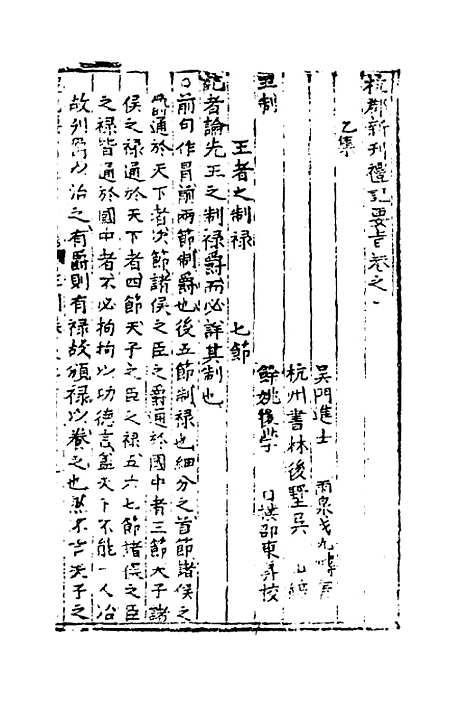 杭郡新刊禮記要旨卷之
乙集
吳門進士 雨泉戈九疇
杭州書林後墅吳
餘姚後學 邵東昇校
王制
王者之制禄 七節
記者論先王之制禄爵而必詳其制也
○前句作冒前兩節制爵也後五節制禄也細分之首節諸侯之
爵通於天下者次節諸侯之臣之爵通於國中者三節天子諸
侯之禄通於天下者四節天子之臣之禄五六七節諸侯之臣
之禄皆通於國中者不必拘拘以功德言蓋天下不能一人治
故列爵以治之有爵則有禄故頒禄以養之也然不言天子之